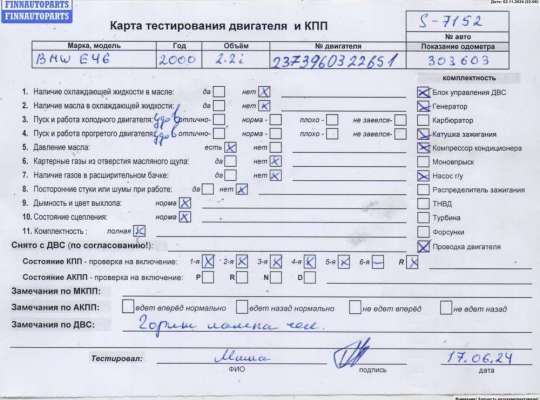 FINNAUTOPARTS
FINNAUTOPARTS
Дата: 02.11.2024
Карта тестирования двигателя и КПП
S-7152
№ авто
Марка, модель Год Объём № двигателя Показание одометра
BMW E46 2000 2.2i 2373960322651 303603
комплектность
1. Наличие охлаждающей жидкости в масле: да нет
2. Наличие масла в охлаждающей жидкости: да нет
3. Пуск и работа холодного двигателя: удов отлично- норма - плохо - не завелся-
4. Пуск и работа прогретого двигателя: удов отлично- норма - плохо - не завелся-
5. Давление масла: есть нет
6. Картерные газы из отверстия масляного щупа: да нет
7. Наличие газов в расширительном бачке: да нет
8. Посторонние стуки или шумы при работе: да нет
9. Дымность и цвет выхлопа: норма
10. Состояние сцепления: норма
11. Комплектность: полная
Блок управления ДВС
Генератор
Карбюратор
Катушка зажигания
Компрессор кондиционера
Моновпрыск
Насос г/у
Распределитель зажигания
ТНВД
Турбина
Форсунки
Проводка двигателя
Снято с ДВС (по согласованию!):
Состояние КПП - проверка на включение: 1-я 2-я 3-я 4-я 5-я 6-я R
Состояние АКПП - проверка на включение: P R N D
Замечания по МКПП:
Замечания по АКПП: едет вперёд нормально едет назад нормально не едет вперёд не едет назад
Замечания по ДВС: Горит лампа чек.
Тестировал: Маша 17.06.24
ФИО подпись дата